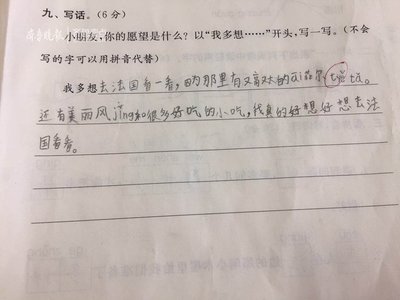 九、写话。(6分)
小朋友,你的愿望是什么?以“我多想……”开头,写一写。(不会
写的字可以用拼音代替)
我多想去法国看一看,因为那里有又高大的āi菲尔 tǎ。
还有美丽风jǐng和很多好吃的小吃,我真的好想好想去法
国看看。